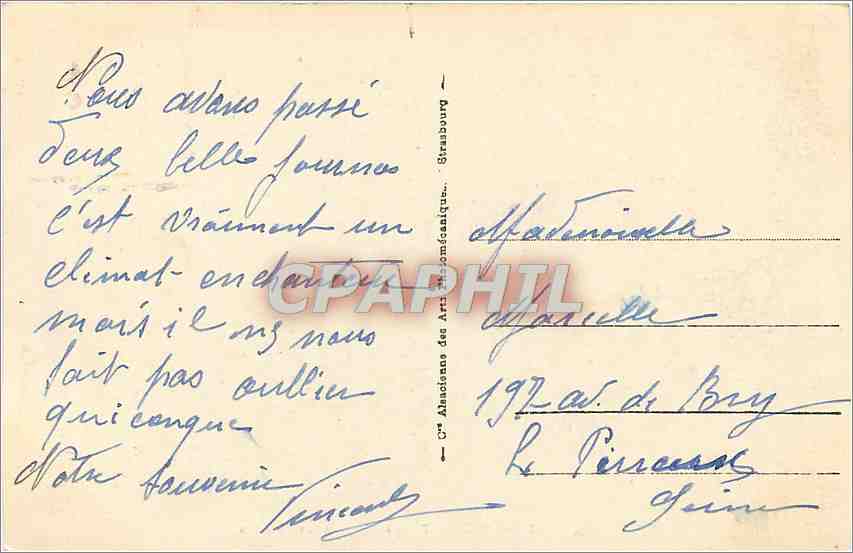 Nous avons passé
deux belle journes
c'est vraiment un
climat enchanteur
mais il ne nous
fait pas oublier
quiconque
Notre souvenir
Vincent
Cie Alsacienne des Arts Photomécaniques. Strasbourg
CPAPHIL
Mademoiselle
Marcelle
197 av. de Bry
Le Perreux
Seine